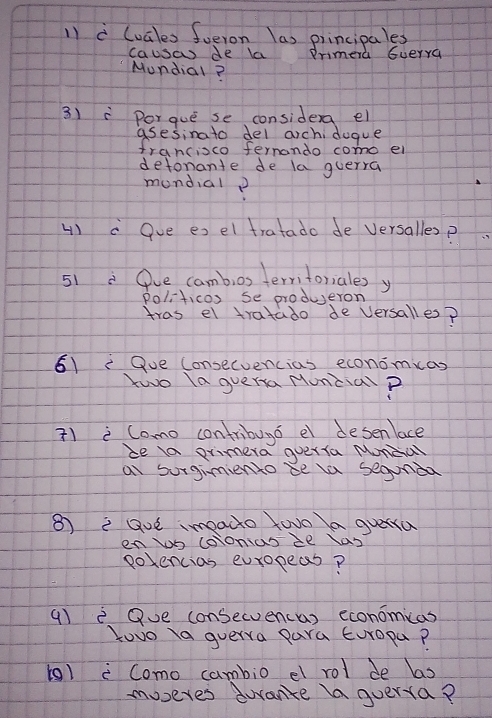 1) ¿ Cuáles fueron las principales
causas de la Primera Guerra
Mundial ?
3) ¿ Por qué se considera el
asesinato del archiduque
francisco fernando como el
detonante de la guerra
mundial ?
4) ¿ Que es el tratado de Versalles ?
5) ¿ Que cambios territoriales y
Políticos se produjeron
tras el tratado de Versalles ?
6) ¿ Que Consecuencias económicas
tuvo la guerra Mundial ?
7) ¿ Como contribuyó el desenlace
de la primera guerra Mundial
al Surgimiento de la Segunda
8) ¿ Qué impacto tuvo la guerra
en las colonias de las
Potencias europeas ?
9) ¿ Que consecuencias económicas
tuvo la guerra para Europa ?
10) ¿ Como cambio el rol de las
mujeres durante la guerra ?